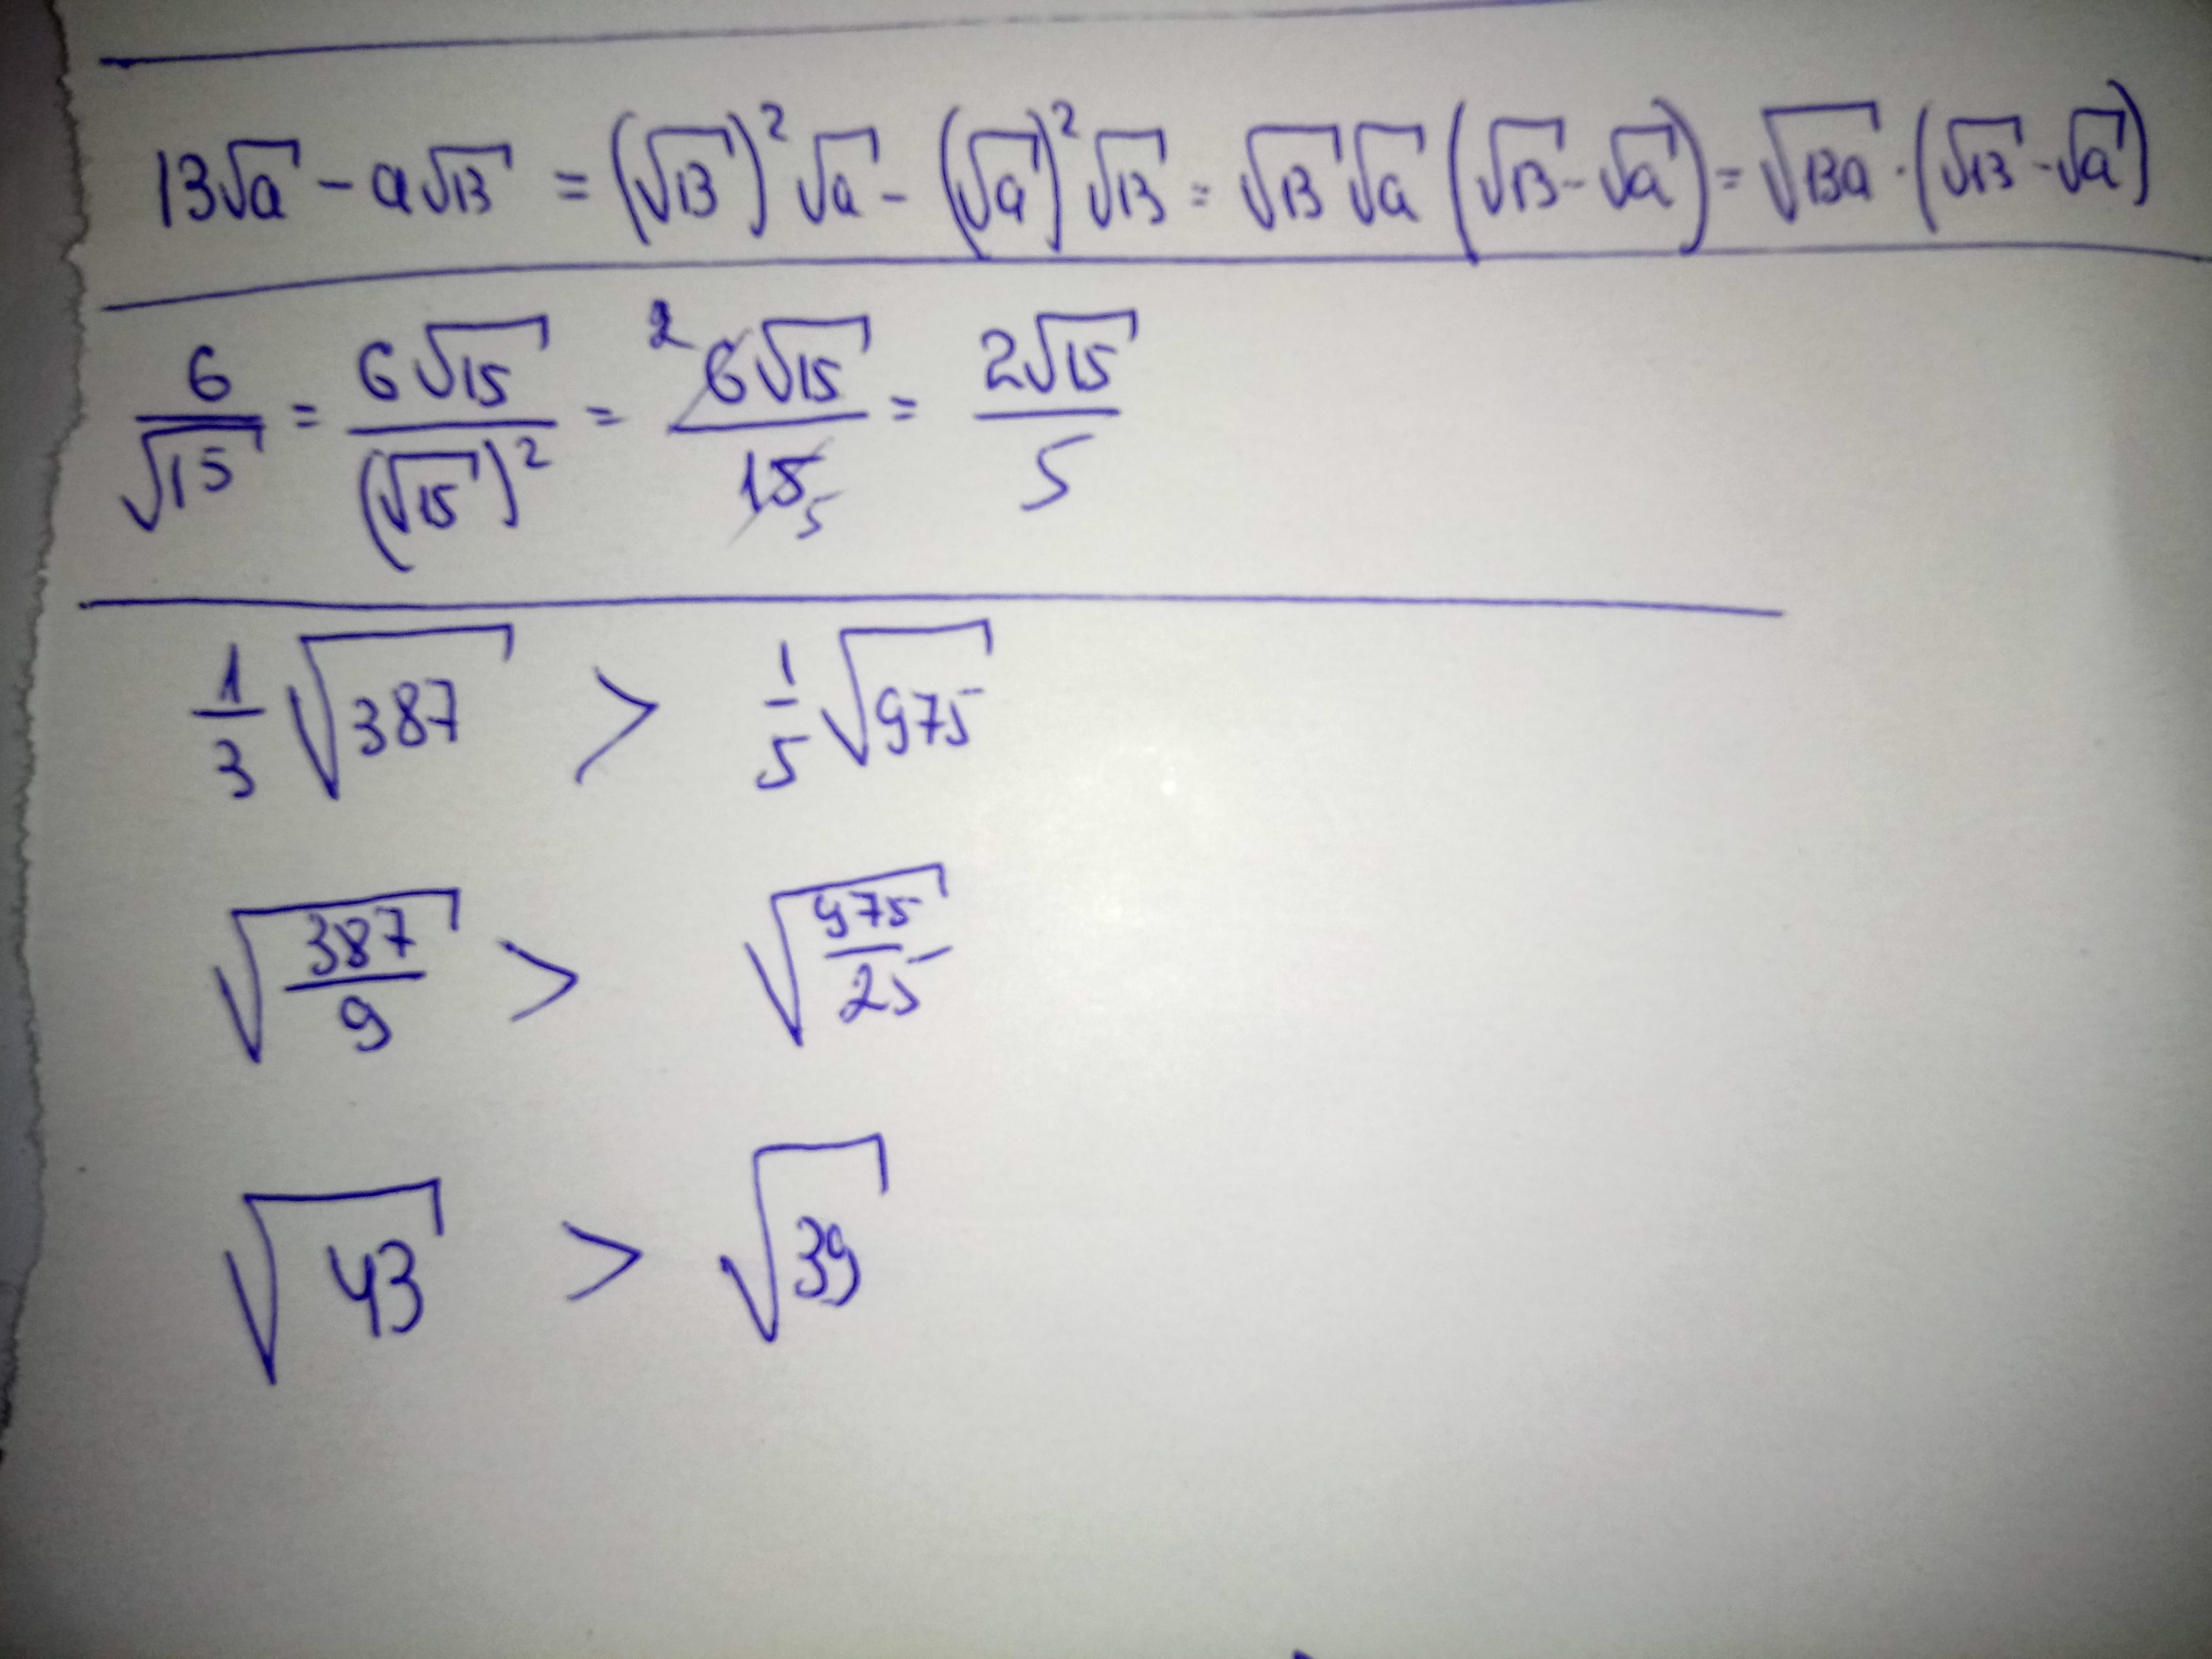 13√a - a√13 = (√13)²√a - (√a)²√13 = √13 √a (√13 - √a) = √13a · (√13 - √a)
6/√15 = 6√15/(√15)² = ² 6√15/15 ₅ = 2√15/5
1/3 √387 > 1/5 √975
√(387/9) > √(975/25)
√43 > √39